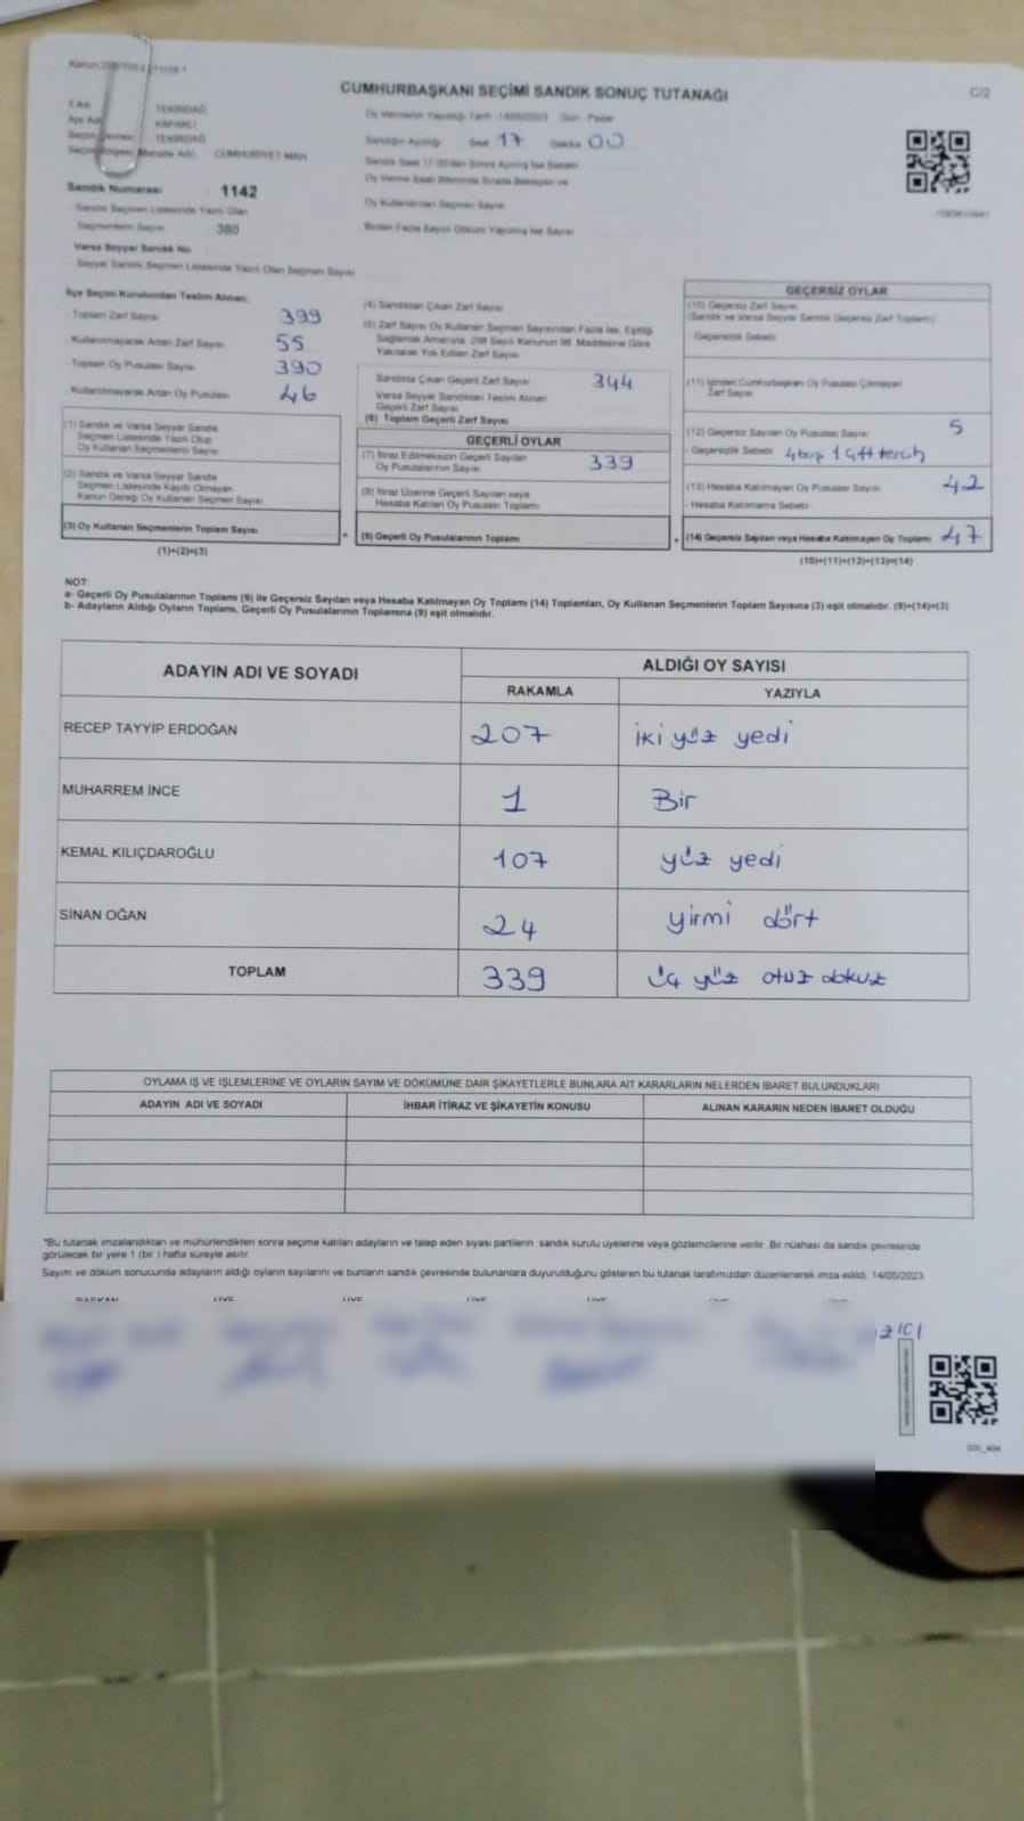 CUMHURBAŞKANI SEÇİMİ SANDIK SONUÇ TUTANAĞI
C/2
TEKİRDAĞ
KAPAKLI
TEKİRDAĞ
CUMHURİYET MAH
Oy Vermenin Yapıldığı Tarih 14/05/2023 Gün Pazar
Sandığın Açıldığı Saat 17 Dakika 00
Sandık Numarası 1142
Sandık Seçmen Listesinde Yazılı Olan
Seçmenlerin Sayısı 380
Varsa Seyyar Sandık No
Seyyar Sandık Seçmen Listesinde Yazılı Olan Seçmen Sayısı
İlçe Seçim Kurulundan Teslim Alınan
Toplam Zarf Sayısı 399
Kullanılmayarak Artan Zarf Sayısı 55
Toplam Oy Pusulası Sayısı 390
Kullanılmayarak Artan Oy Pusulası 46
(1) Sandık ve Varsa Seyyar Sandık
Seçmen Listesinde Yazılı Olup
Oy Kullanan Seçmenlerin Sayısı
(2) Sandık ve Varsa Seyyar Sandık
Seçmen Listesinde Kayıtlı Olmayan
Kanun Gereği Oy Kullanan Seçmen Sayısı
(3) Oy Kullanan Seçmenlerin Toplam Sayısı
(1)+(2)=(3)
(4) Sandıktan Çıkan Zarf Sayısı
(5) Zarf Sayısı Oy Kullanan Seçmen Sayısından Fazla İse, Eşitliği
Sağlamak Amacıyla, 298 Sayılı Kanunun 98. Maddesine Göre
Yakılarak Yok Edilen Zarf Sayısı
Sandıkta Çıkan Geçerli Zarf Sayısı 344
Varsa Seyyar Sandıktan Teslim Alınan
Geçerli Zarf Sayısı
(6) Toplam Geçerli Zarf Sayısı
GEÇERLİ OYLAR
(7) İtiraz Edilmeksizin Geçerli Sayılan
Oy Pusulalarının Sayısı 339
(8) İtiraz Üzerine Geçerli Sayılan veya
Hesaba Katılan Oy Pusulası Toplamı
(9) Geçerli Oy Pusulalarının Toplamı
GEÇERSİZ OYLAR
(10) Geçersiz Zarf Sayısı
(Sandık ve Varsa Seyyar Sandık Geçersiz Zarf Toplamı)
Geçersizlik Sebebi
(11) İçinden Cumhurbaşkanı Oy Pusulası Çıkmayan
Zarf Sayısı
(12) Geçersiz Sayılan Oy Pusulası Sayısı 5
- Geçersizlik Sebebi 4 boş 1 çift tercih
(13) Hesaba Katılmayan Oy Pusulası Sayısı 42
- Hesaba Katılmama Sebebi
(14) Geçersiz Sayılan veya Hesaba Katılmayan Oy Toplamı 47
(10)+(11)+(12)+(13)=(14)
NOT:
a- Geçerli Oy Pusulalarının Toplamı (9) ile Geçersiz Sayılan veya Hesaba Katılmayan Oy Toplamı (14) Toplamları, Oy Kullanan Seçmenlerin Toplam Sayısına (3) eşit olmalıdır. (9)+(14)=(3)
b- Adayların Aldığı Oyların Toplamı, Geçerli Oy Pusulalarının Toplamına (9) eşit olmalıdır.
ADAYIN ADI VE SOYADI
ALDIĞI OY SAYISI
RAKAMLA YAZIYLA
RECEP TAYYİP ERDOĞAN 207 iki yüz yedi
MUHARREM İNCE 1 Bir
KEMAL KILIÇDAROĞLU 107 yüz yedi
SİNAN OĞAN 24 yirmi dört
TOPLAM 339 üç yüz otuz dokuz
OYLAMA İŞ VE İŞLEMLERİNE VE OYLARIN SAYIM VE DÖKÜMÜNE DAİR ŞİKAYETLERLE BUNLARA AİT KARARLARIN NELERDEN İBARET BULUNDUKLARI
ADAYIN ADI VE SOYADI İHBAR İTİRAZ VE ŞİKAYETİN KONUSU ALINAN KARARIN NEDEN İBARET OLDUĞU
*Bu tutanak imzalandıktan ve mühürlendikten sonra seçime katılan adayların ve talep eden siyasi partilerin sandık kurulu üyelerine veya gözlemcilerine verilir. Bir nüshası da sandık çevresinde
görülecek bir yere 1 (bir) hafta süreyle asılır.
Sayım ve döküm sonucunda adayların aldığı oyların sayılarını ve bunların sandık çevresinde bulunanlara duyurulduğunu gösteren bu tutanak tarafımızdan düzenlenerek imza edildi. 14/05/2023